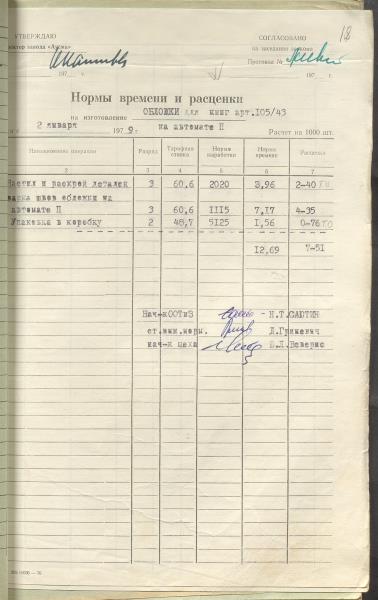 УТВЕРЖДАЮ
СОГЛАСОВАНО
18
завода «Аусма»
на заседании завкома
Протокол №
197 г.
197 г.
Нормы времени и расценки
на изготовление ОБЛОЖКИ для книг арт.105/43
2 января 1979 г. на автомате П Расчет на 1000 шт.
Наименование операции Разряд Тарифная ставка Норма выработки Норма времени Расценка
2 3 4 5 6 7
Настил и раскрой деталей 3 60,6 2020 3,96 2-40
варка швов обложки на
автомате П 3 60,6 1115 7,17 4-35
Упаковка в коробку 2 48,7 5125 1,56 0-76
12,69 7-51
Нач-к ООТиЗ Н.Т.САЮТИН
ст.инж.норм. Л.Гриневич
нач-к цеха Веверис